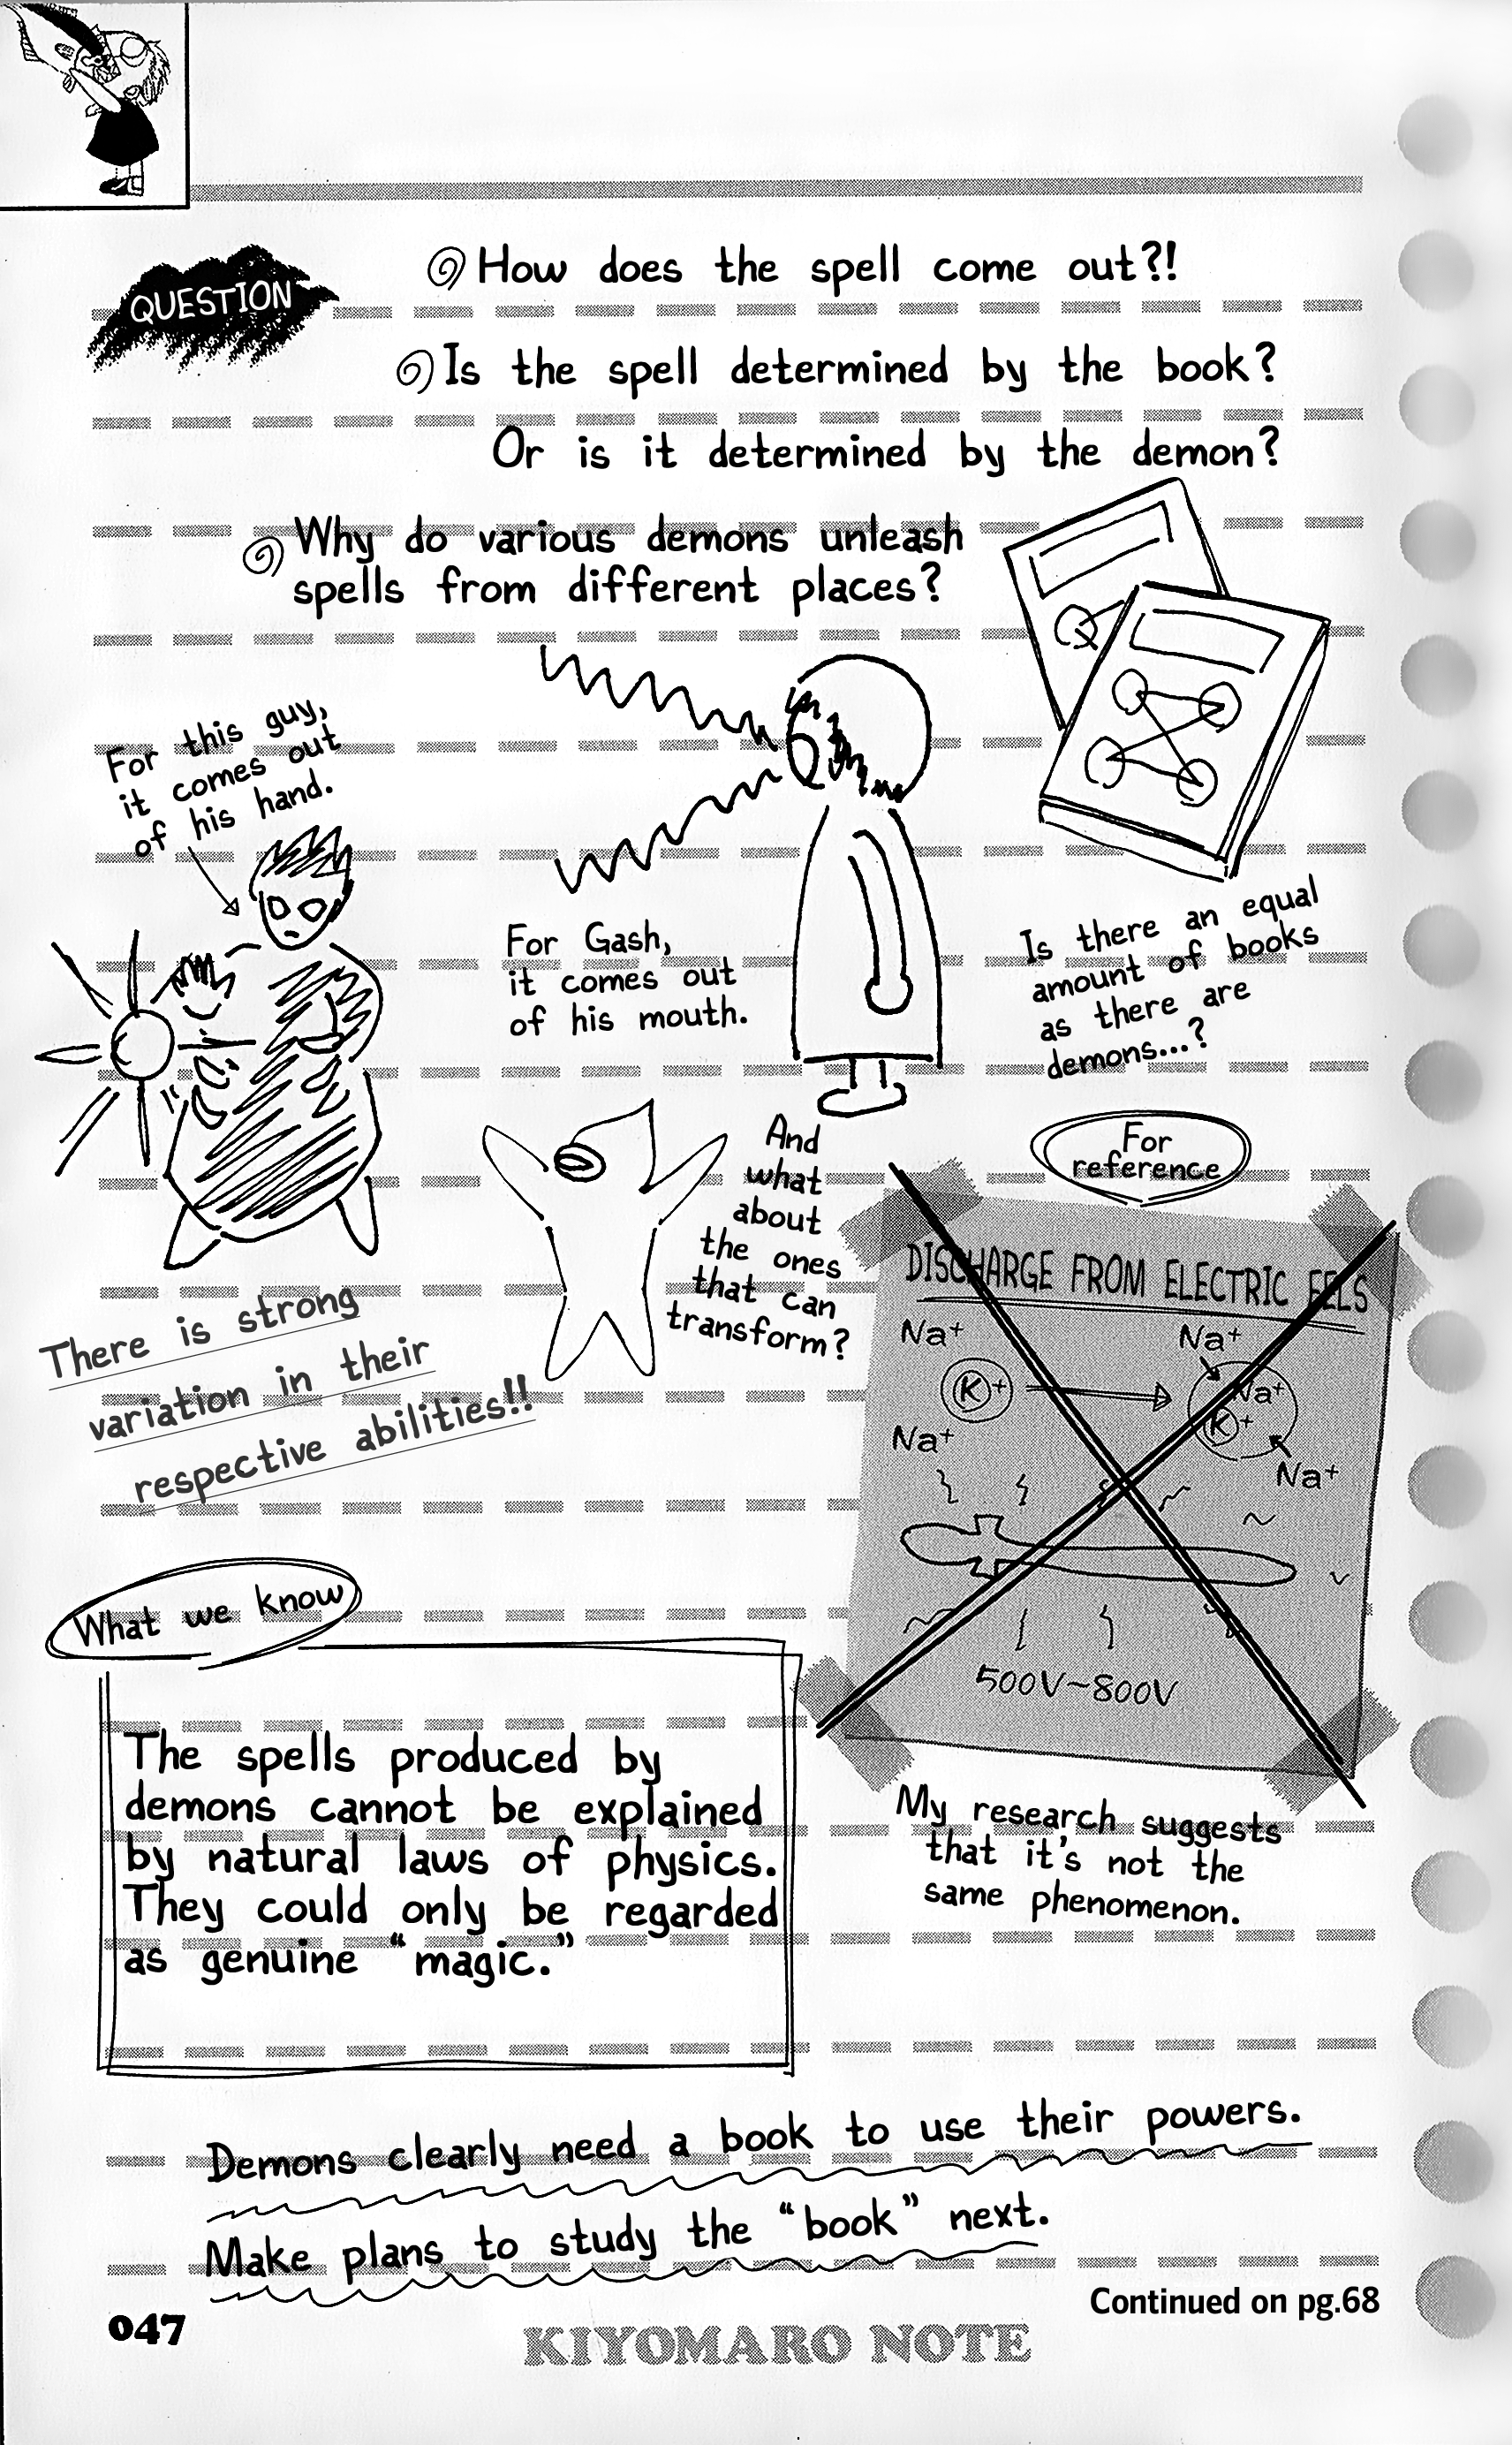 QUESTION
How does the spell come out?!
Is the spell determined by the book?
Or is it determined by the demon?
Why do various demons unleash
spells from different places?
For this guy,
it comes out
of his hand.
For Gash,
it comes out
of his mouth.
Is there an equal
amount of books
as there are
demons...?
And
what
about
the ones
that can
transform?
There is strong
variation in their
respective abilities!!
For
reference
DISCHARGE FROM ELECTRIC EELS
Na+
Na+
K+
Na+
K+
Na+
Na+
500V~800V
My research suggests
that it's not the
same phenomenon.
What we know
The spells produced by
demons cannot be explained
by natural laws of physics.
They could only be regarded
as genuine “magic.”
Demons clearly need a book to use their powers.
Make plans to study the “book” next.
Continued on pg.68
047
KIYOMARO NOTE